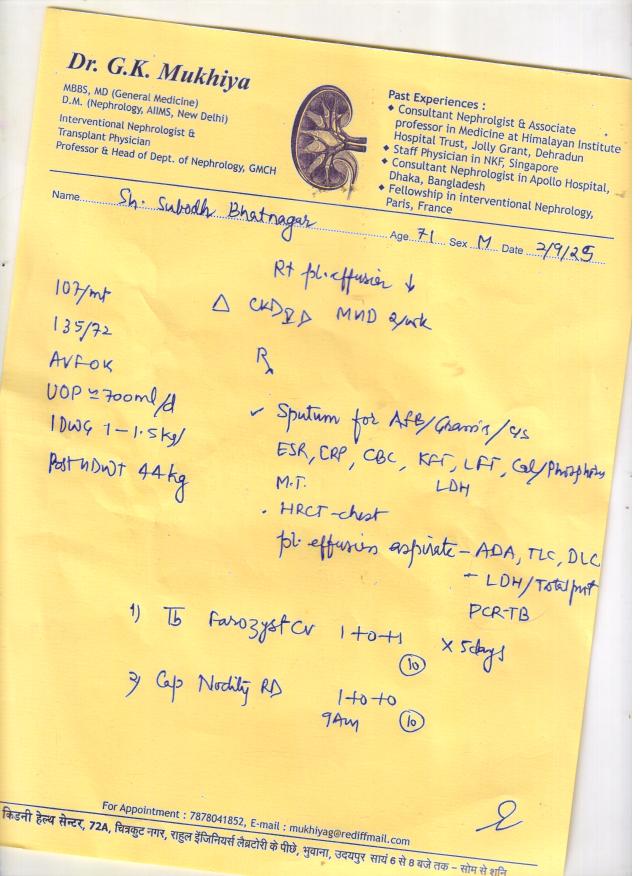 Dr. G.K. Mukhiya
MBBS, MD (General Medicine)
D.M. (Nephrology, AIIMS, New Delhi)
Interventional Nephrologist &
Transplant Physician
Professor & Head of Dept. of Nephrology, GMCH
Past Experiences :
◆ Consultant Nephrolgist & Associate
professor in Medicine at Himalayan Institute
Hospital Trust, Jolly Grant, Dehradun
◆ Staff Physician in NKF, Singapore
◆ Consultant Nephrologist in Apollo Hospital,
Dhaka, Bangladesh
◆ Fellowship in interventional Nephrology,
Paris, France
Name Sh. Subodh Bhatnagar Age 71 Sex M Date 2/9/25
107/mt
135/72
AVF OK
UOP ≃ 700ml/d
IDWG 1-1.5kg/
Post HDWT 44kg
Rt pl. effusion ↓
△ CKD V D MHD 2/wk
Rx
✓ Sputum for AFB/Gram's/c/s
ESR, CRP, CBC, KFT, LFT, Cal/Phosphorus
M.T. LDH
. HRCT-chest
pl. effusion aspirate - ADA, TLC, DLC
- LDH/Total prot
PCR-TB
1) Tb Farozyst CV 1+0+1 x 5days
(10)
2) Cap Nodity RD 1+0+0
9Am (10)
For Appointment : 7878041852, E-mail : mukhiyag@rediffmail.com
किडनी हेल्थ सेन्टर, 72A, चित्रकुट नगर, राहुल इंजिनियर्स लैब्रटोरी के पीछे, भुवाना, उदयपुर सायं 6 से 8 बजे तक – सोम से शनि